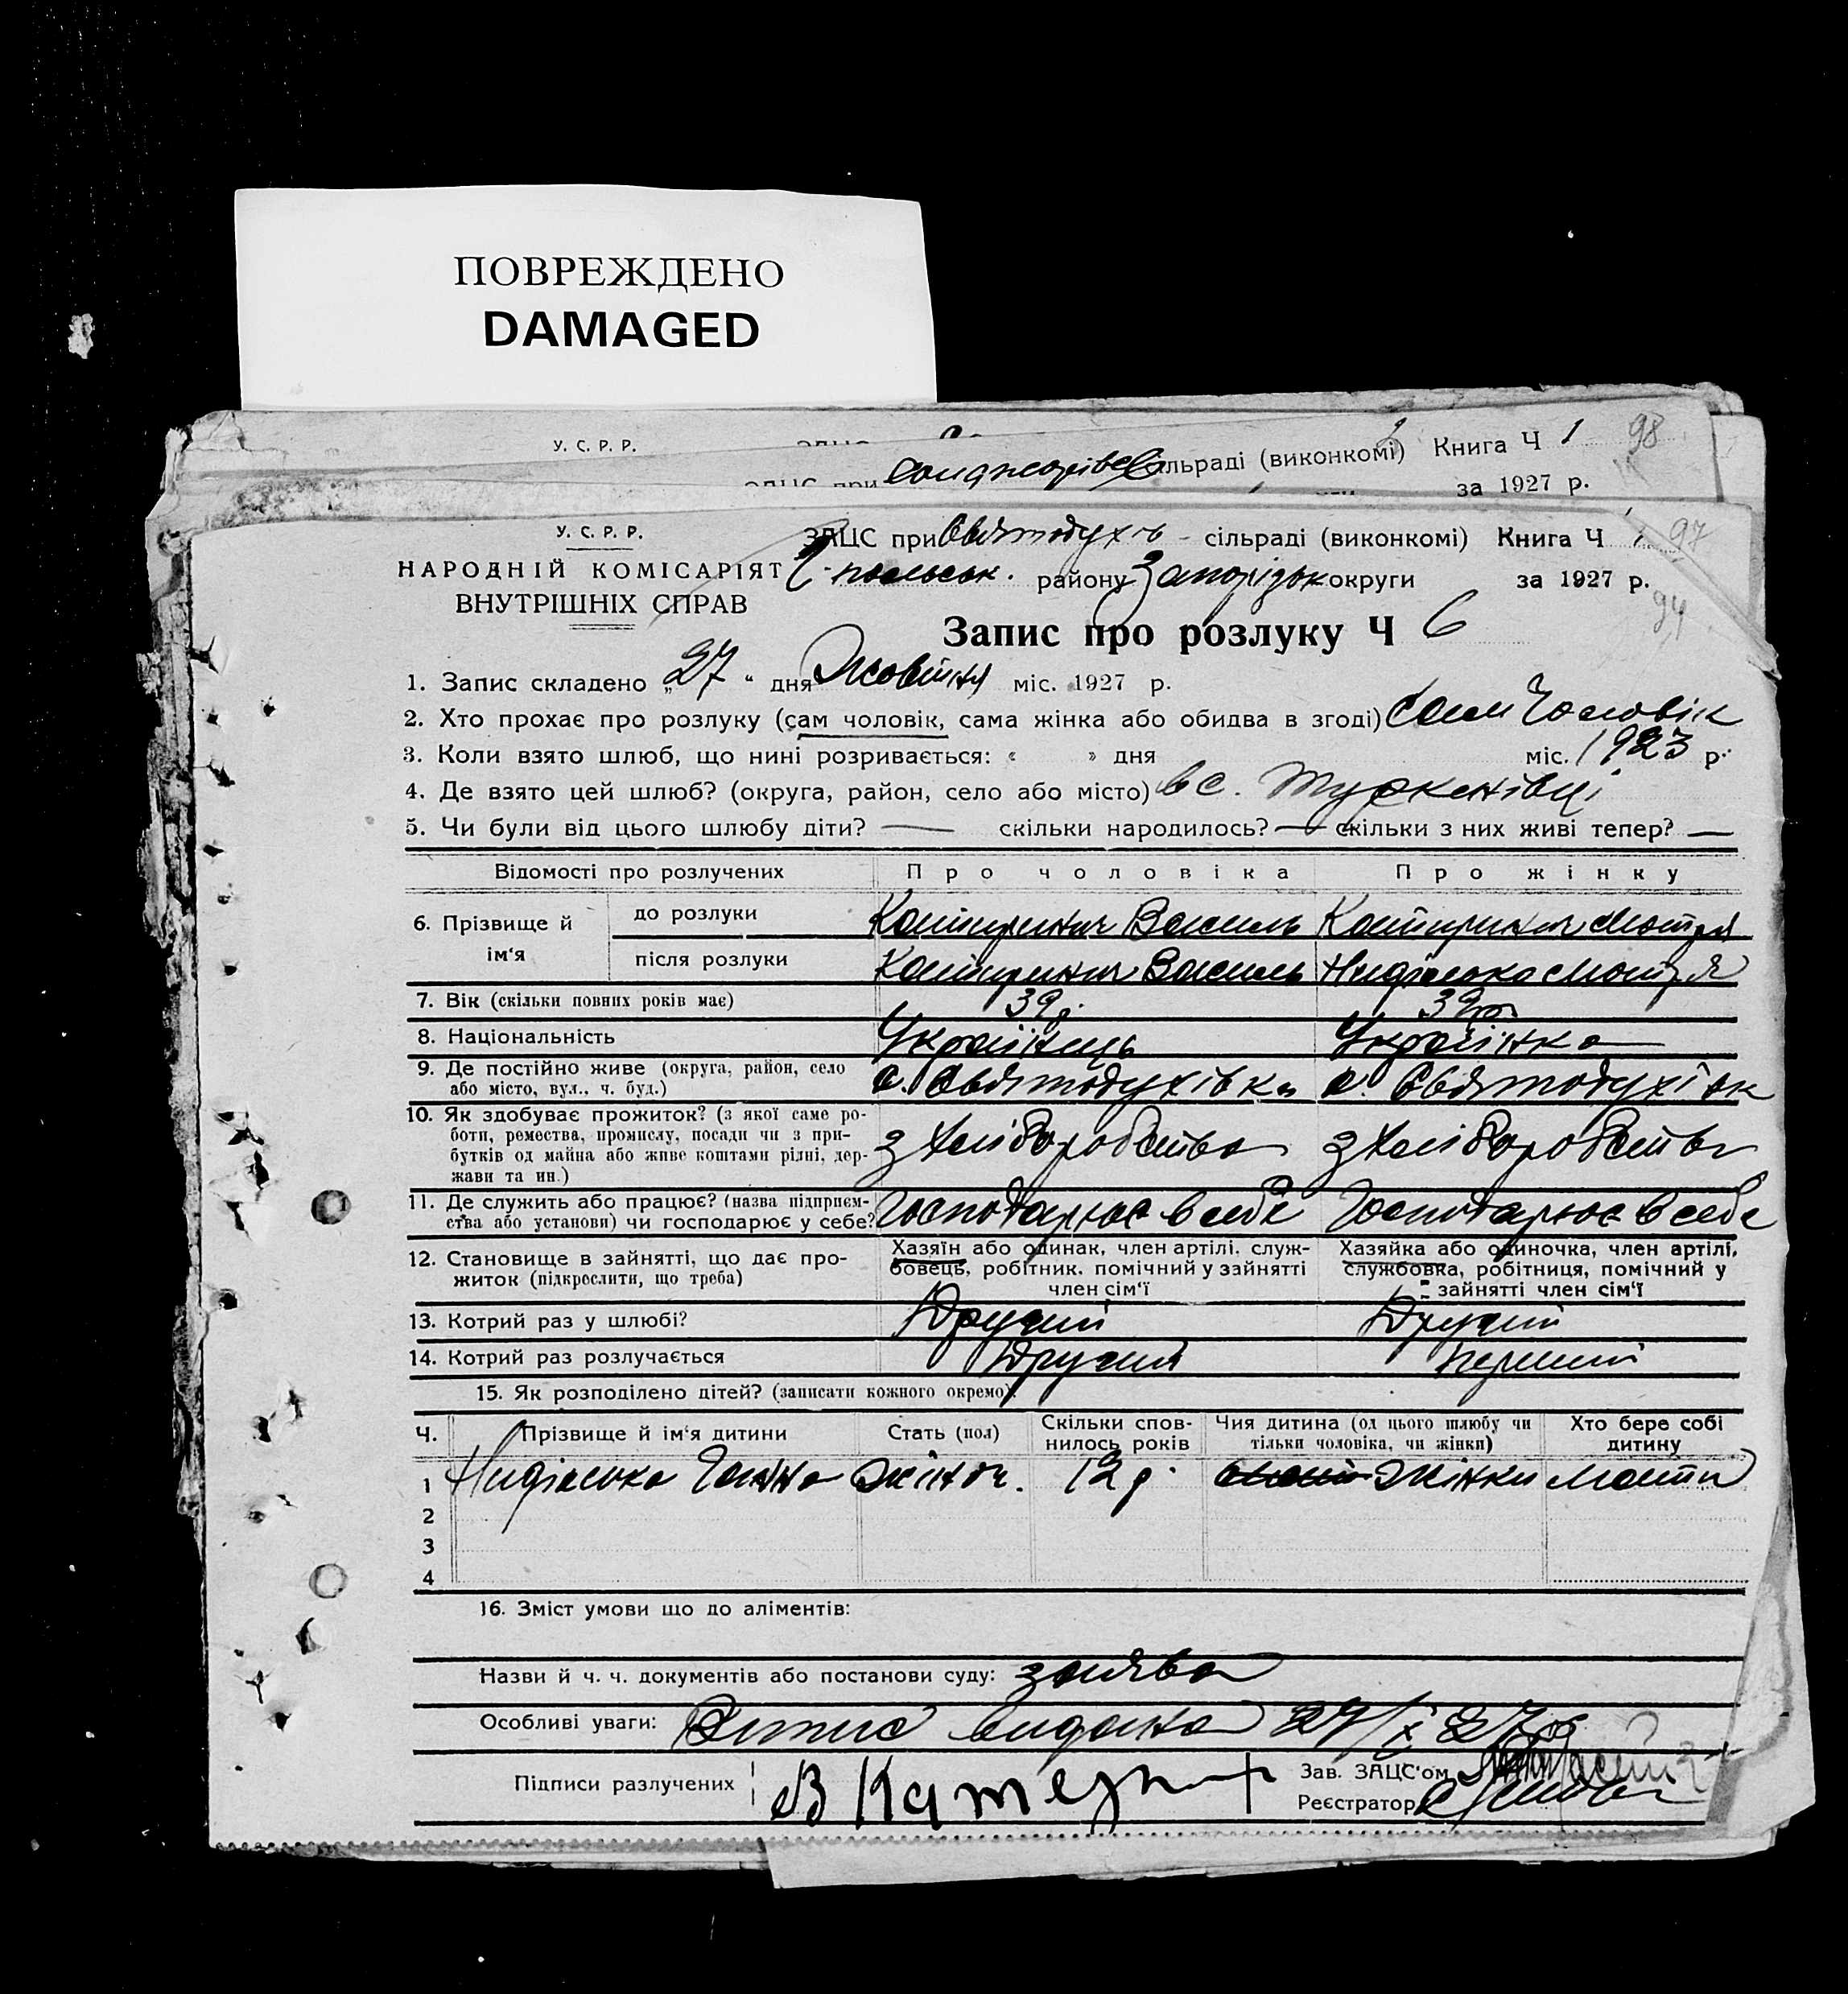 ПОВРЕЖДЕНО
DAMAGED
У. С. Р. Р.
сільраді (виконкомі) Книга Ч 1 98
за 1927 р.
У. С. Р. Р.
ЗАЦС при Святодухів - сільраді (виконкомі) Книга Ч 1 97
НАРОДНІЙ КОМІСАРІЯТ
Г-польськ. району Запорізьк округи за 1927 р.
ВНУТРІШНІХ СПРАВ
94
Запис про розлуку Ч 6
1. Запис складено „27“ дня Жовтня міс. 1927 р.
2. Хто прохає про розлуку (сам чоловік, сама жінка або обидва в згоді) Сам Чоловік
3. Коли взято шлюб, що нині розривається: « » дня міс. 1923 р.
4. Де взято цей шлюб? (округа, район, село або місто) в с. Туркенівці
5. Чи були від цього шлюбу діти? — скільки народилось? — скільки з них живі тепер? —
Відомості про розлучених Про чоловіка Про жінку
6. Прізвище й ім‘я до розлуки Василь Мотря
після розлуки Василь Мотря
7. Вік (скільки повних років має) 39 р. 39 р.
8. Національність Українець Українка
9. Де постійно живе (округа, район, село
або місто, вул., ч. буд.) с. Святодухівка с. Святодухівк
10. Як здобуває прожиток? (з якої саме ро-
боти, ремества, промислу, посади чи з при-
бутків од майна або живе коштами рідні, дер-
жави та ин.) з Хліборобства з Хліборобства
11. Де служить або працює? (назва підприєм-
ства або установи) чи господарює у себе? Господарює в себе Господарює в себе
12. Становище в зайнятті, що дає про-
житок (підкреслити, що треба)
Хазяїн або одинак, член артілі, служ-
бовець, робітник, помічний у зайнятті
член сім‘ї
Хазяйка або одиночка, член артілі,
службовка, робітниця, помічний у
зайнятті член сім‘ї
13. Котрий раз у шлюбі? Другий Другий
14. Котрий раз розлучається Другий перший
15. Як розподілено дітей? (записати кожного окремо).
Ч. Прізвище й ім‘я дитини Стать (пол) Скільки спов-
нилось років Чия дитина (од цього шлюбу чи
тільки чоловіка, чи жінки) Хто бере собі
дитину
1 Ганна Жіноч. 12 р. Жінки Мати
2
3
4
16. Зміст умови що до аліментів:
Назви й ч. ч. документів або постанови суду: заява
Особливі уваги: видана 27/X 27 р
Підписи разлучених В Катерин Зав. ЗАЦС‘ом
Реєстратор